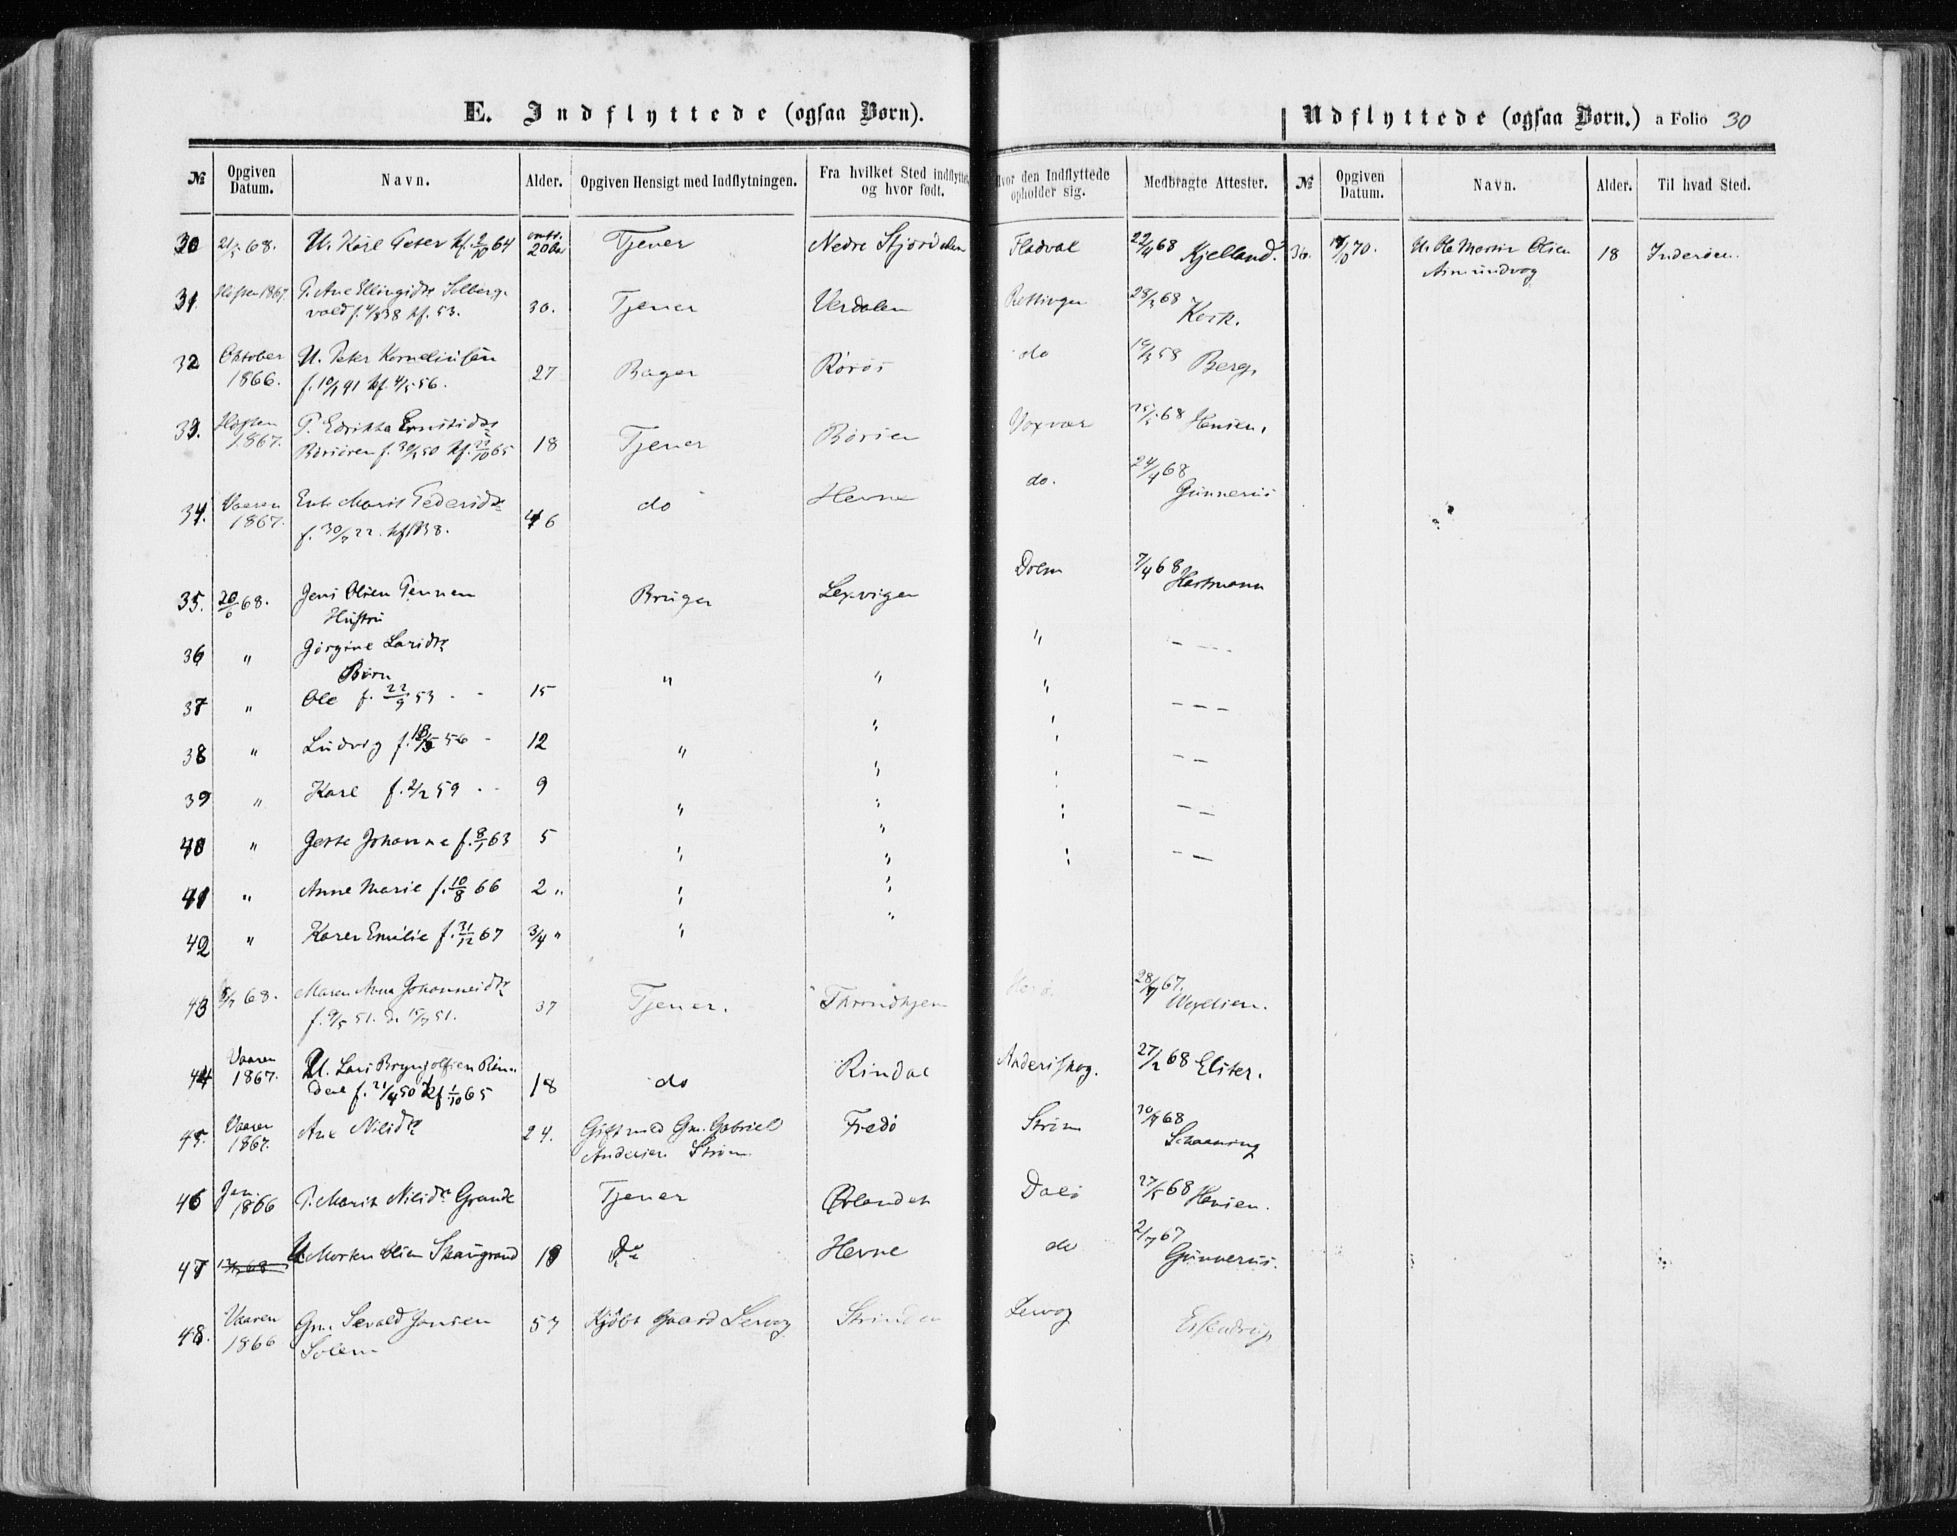 E. Indflyttede (ogsaa Børn).
Udflyttede (ogsaa Børn.) a Folio 30
№ Opgiven Datum. Navn. Alder. Opgiven Hensigt med Indflytningen. Fra hvilket Sted indflyttet og hvor født. Hvor den Indflyttede opholder sig. Medbragte Attester. № Opgiven Datum. Navn. Alder. Til hvad Sted.
30 21/5 68. U. Karl Peter kf. 2/10 64 Tjener Nedre Stjørdalen Fladval 22/4 68 Kjelland. 36. 70. U. Ole Martin Olsen 18 Inderøen.
31 Høsten 1867. P. Ane Ellingsdtr Solberg- 30. Tjener Verdalen 28/3 68
vald f. 4/8 38 kf. 53.
32 Oktober U. Peter Korneliussen 27 Bager Røros do 58 Berg.
1866. f. 10/1 41 kf. 4/5 56.
33. Høsten P. 18 Tjener Børsen 68 Hansen.
1867. Børsøren f. 30/1 50 kf. 22/10 65
34. Vaaren Enke Marit Pedersdtr 46 do Hevne do. 24/4 68
1867. f. 30/7 22. kf. 1838. Gunnerus
35. 20/6 68. Jens Olsen Tennen Bruger Lexvigen Dolm 7/4 68 Hartmann
Hustru
36 " Jørgine Larsdtr " - - -
Børn
37 " Ole f. 22/9 53 - - 15 " " " - - -
38 " Ludvig f. 18/5 56 - 12 " " " - -
39 " Karl f. 2/2 59 - - 9 " " " - -
40 " Gerte Johanna f. 8/1 63 5 " " " - -
41 " Anne Marie f. 10/8 66 2 " " "
42 " Karen Emilie f. 31/12 67 3/4 " " "
43 68. Maren Anna Johannesdtr 37 Tjener. Throndhjem 28/ 67.
f. 9/5 51. 51. Wexelsen.
44 Vaaren U. Lars Brynjolfsen 18 do Rindal Anderskog. 27/2 68 Elster.
1867. f. 21/4 50 kf. 1/10 65
45. Vaaren Ane Nilsdtr 24. Gift med Gm. Gabriel Fredø Strøm 68
1867. Andersen Strøm. Schaanning
46 Jan. P. Marit Nilsdtr Grande Tjener Ørlandet Dalø 27/5 68 Hansen.
1866
47 13/ 68 U. Morten Olsen Skaugrand 18 Do Hevne do 2/7 67
Gunnerus.
48. Vaaren Gm. Sevald Jonsen 57 Kjøbt Gaard Lervog Strinden Lervog
1866 Solem